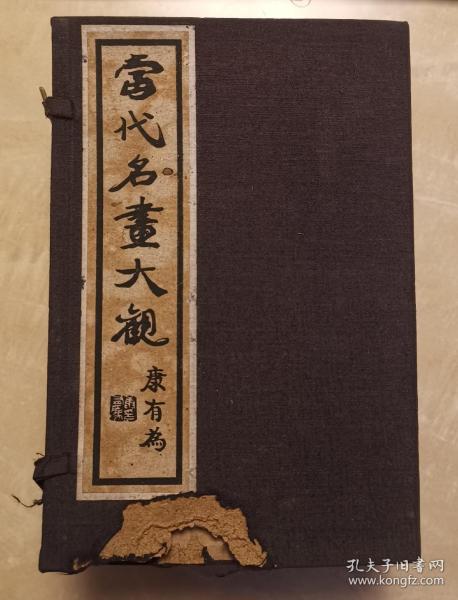 當代名畫大觀
康有為
孔夫子旧書网
www.kongfz.com